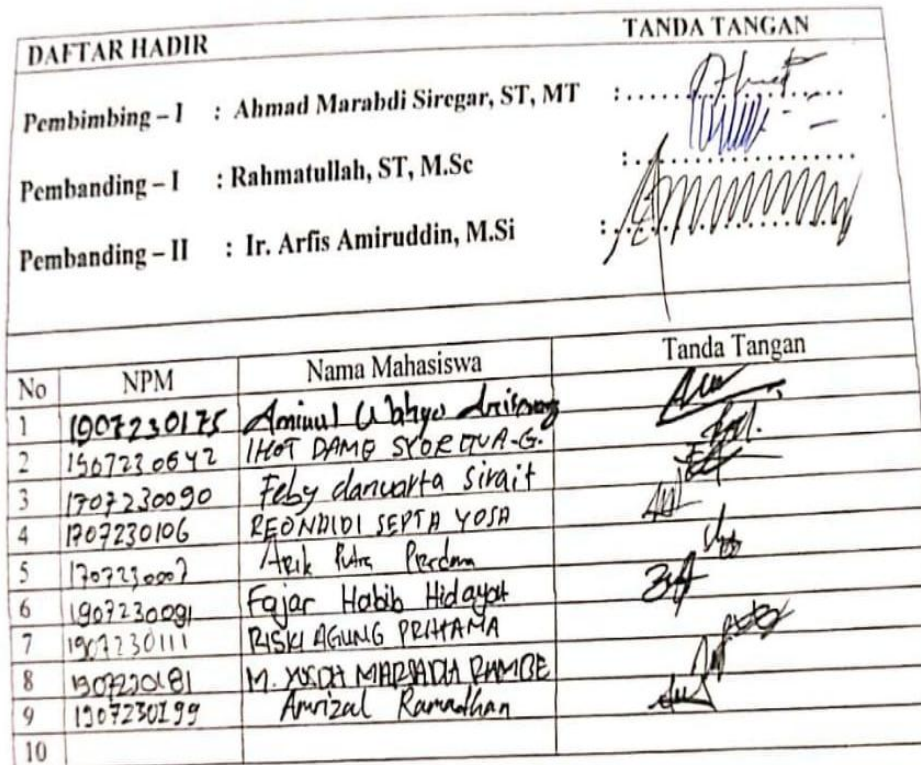 DAFTAR HADIR TANDA TANGAN
Pembimbing – I : Ahmad Marabdi Siregar, ST, MT :
Pembanding – I : Rahmatullah, ST, M.Sc :
Pembanding – II : Ir. Arfis Amiruddin, M.Si :
No NPM Nama Mahasiswa Tanda Tangan
1 1907230175 Aminul Wahyu
2 IHOT DAME
3 1707230090 Feby danuarta Sirait
4 1707230106 SEPTA YOSA
5 Putra Perdana
6 1907230091 Fajar Habib Hidayat
7 1907230111 RISKI AGUNG PRATAMA
8 1907230181 M. RAMBE
9 1907230199 Amrizal Ramadhan
10